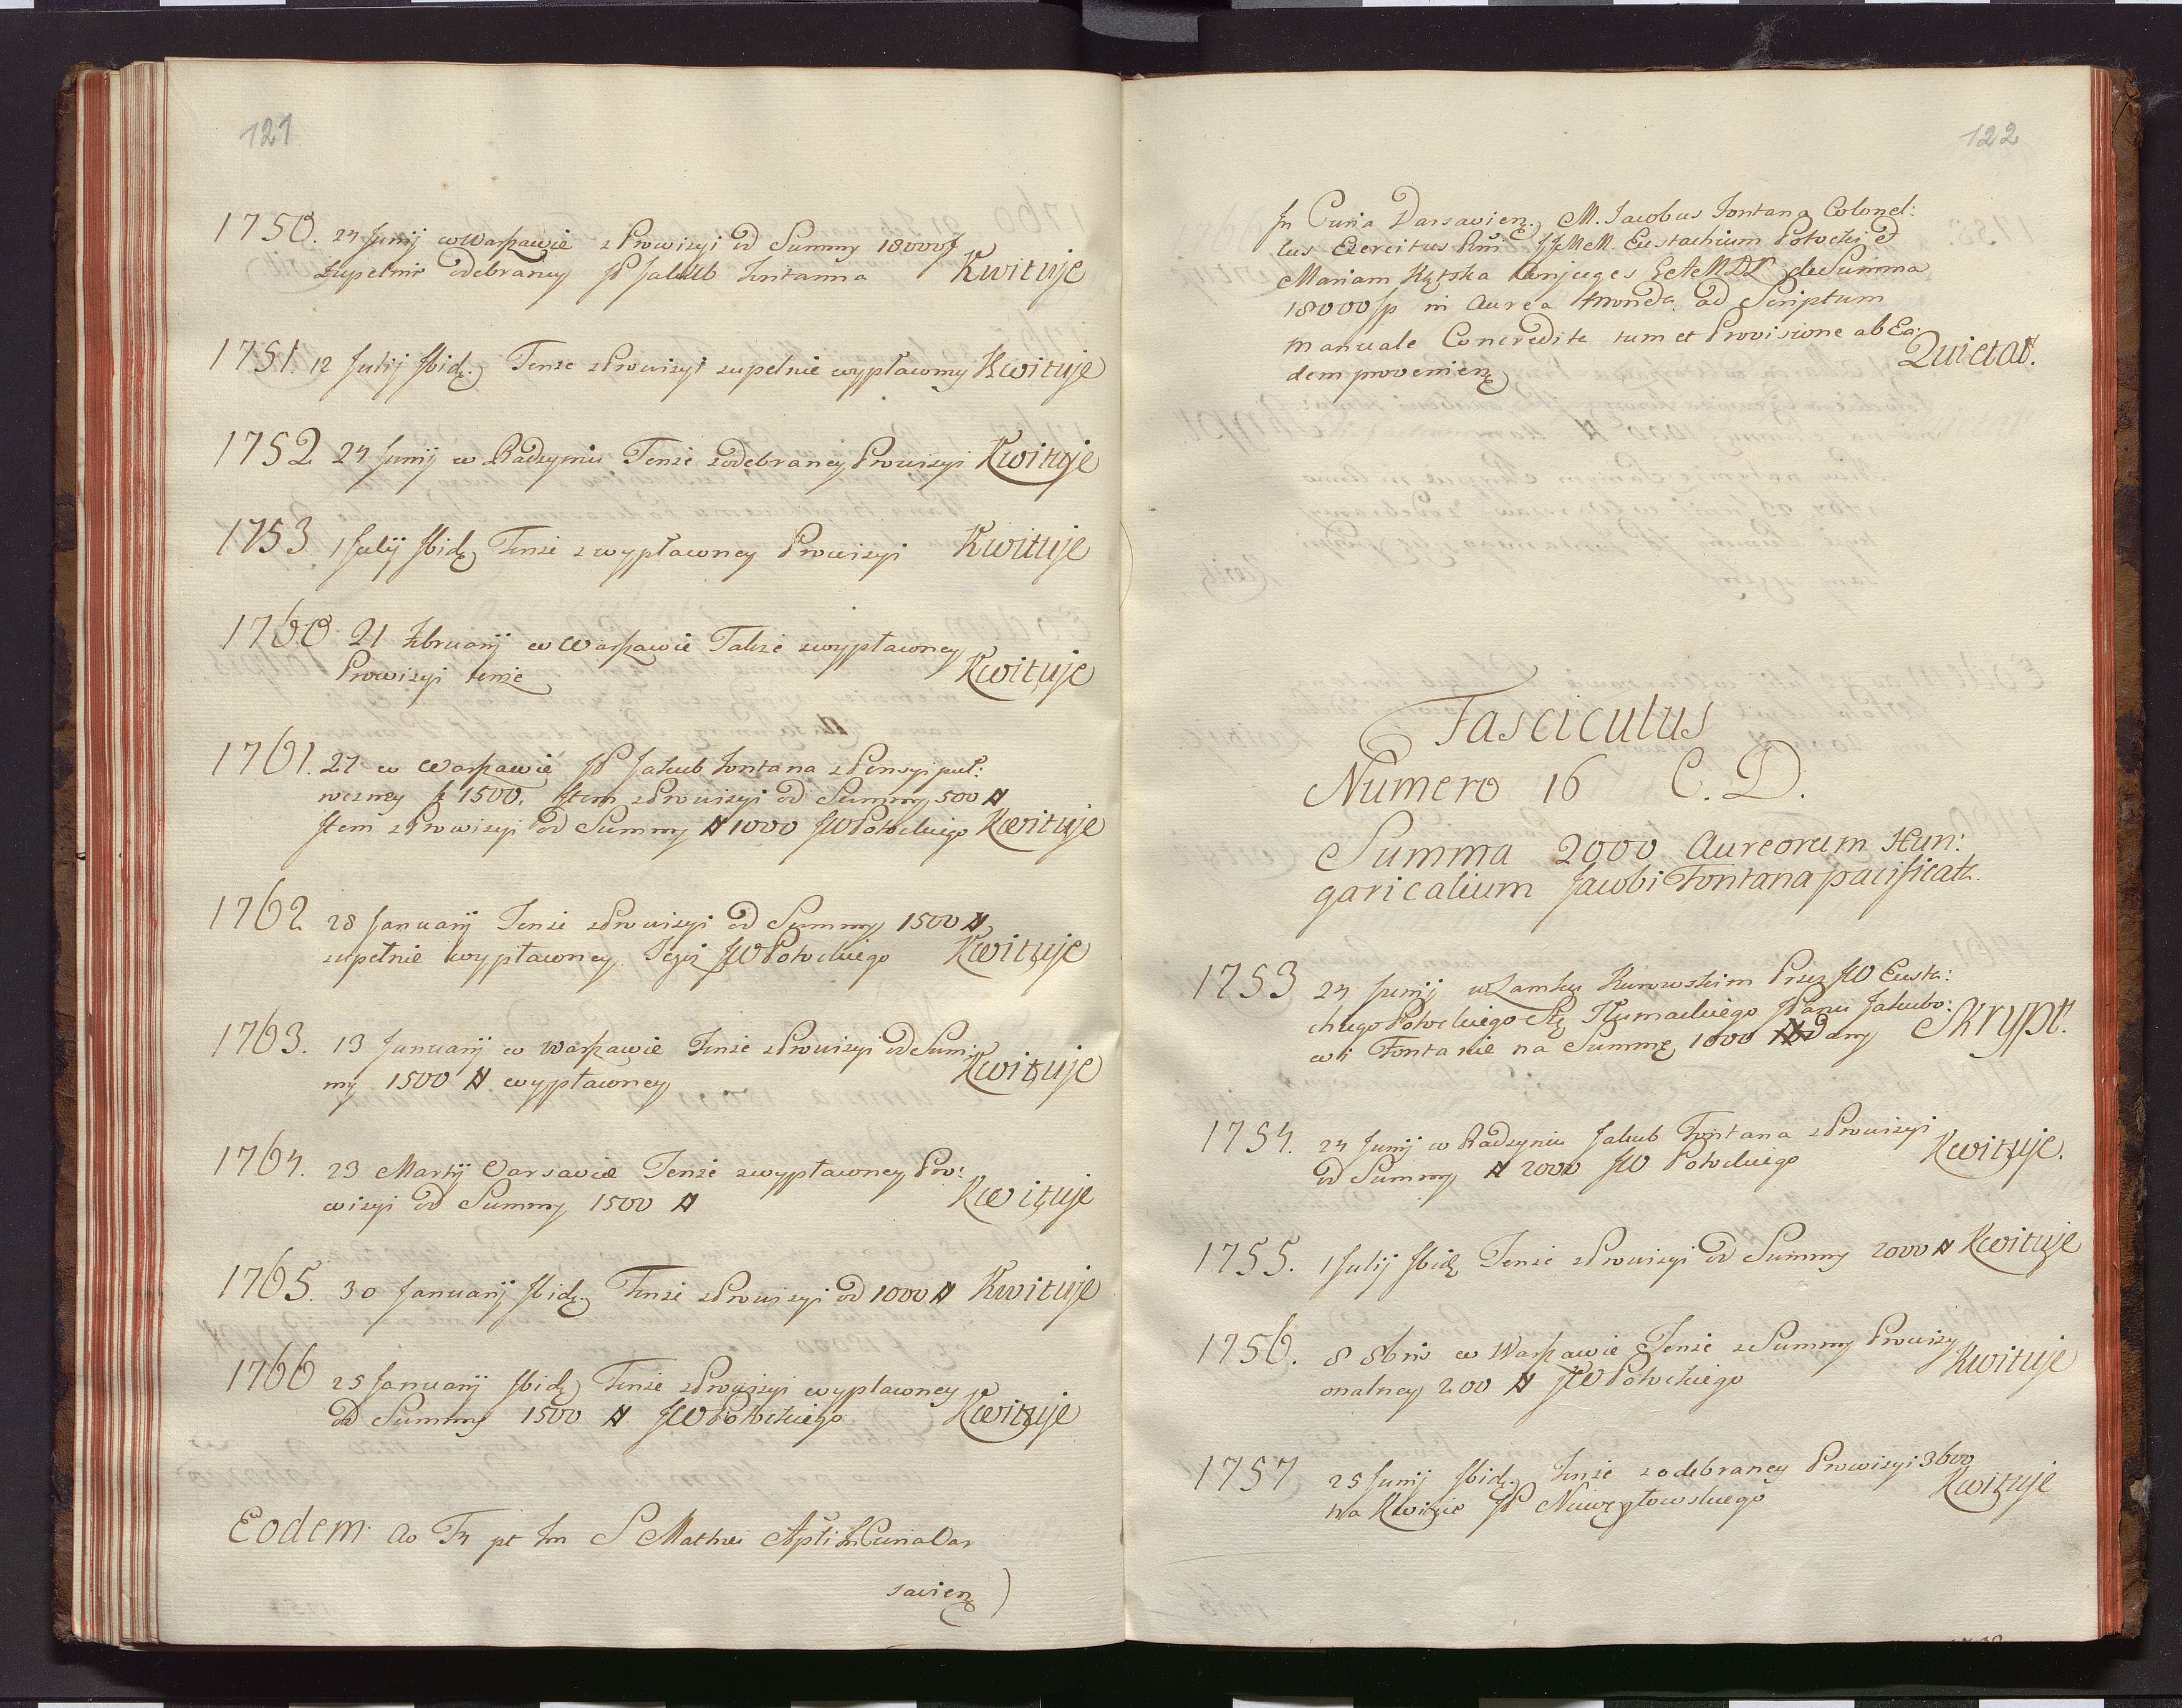 121
1750. 24 Junij w Warszawie z Prowizyi od Summy 18000 f
zupełnie odebraney JP Jakub Fontanna Kwituje
1751. 12 Julij Ibid. Tenże z Prowizyi zupełnie wypłaconey Kwituje
1752 24 Junij w Radzyniu Tenże z odebraney Prowizyi Kwituje
1753. 1 Julij Ibid. Tenże z wypłaconey Prowizyi Kwituje
1760 21 Februarij w Warszawie Takze z wypłaconey
Prowizyi tenże Kwituje
1761. 27 w Warszawie JP Jakub Fontana z Pensyi
f 1500. Item z Prowizyi od Summy 500 #
Item z Prowizyi od Summy # 1000 JW Potockiego Kwituje
1762 28 Januarij Tenże z Prowizyi od Summy 1500 #
zupełnie wypłaconey JW Potockiego Kwituje
1763. 13 Januarij w Warszawie Tenże z Prowizyi od Sum:
my 1500 # wypłaconey Kwituje
1764. 23 Martij Varsaviæ Tenże z wypłaconey Pro:
wizyi od Summy 1500 # Kwituje
1765. 30 Januarij Ibid. Tenże z Prowizyi od 1000 # Kwituje
1766 25 Januarij Ibid. Tenże z Prowizyi wypłaconey
od Summy 1500 # JW Potockiego Kwituje
Eodem Ao F4 pt Fm S Mathei Apli In Curia Var
savien)
122
In Curia Varsavien. M. Jacobus Fontana Colonel:
lus Exercitus Rni MM. Eustachium Potocki et
Mariam Kątska Conjuges de Summa
18000 fp in Aurea ad Scriptum
manuale Concredita tum et Provisione ab Ea:
dem provenien Quietat.
Fasciculus
Numero 16 C. D.
Summa 2000 Aureorum Hun:
garicalium Jacobi Fontana pacificata.
1753 24 Junij w Zamku Kurowskim Przez JW Eusta:
chego Potockiego Stę Tłumackiego JPanu Jakubo:
wi Fontanie na Summę 1000 # Dany Skrypt.
1754. 24 Junij w Radzyniu Jakub Fontana z Prowizyi
od Summy # 2000 JW Potockiego Kwituje.
1755. 1 Julij Ibid. Tenże z Prowizyi od Summy 2000 # Kwituje
1756. 8 8bris w Warszawie Tenże z Summy Prowizy
onalney 200 # JW Potockiego Kwituje
1757 25 Junij Ibid. Tenże z odebraney Prowizyi 3600
na Kwicie JP Kwituje